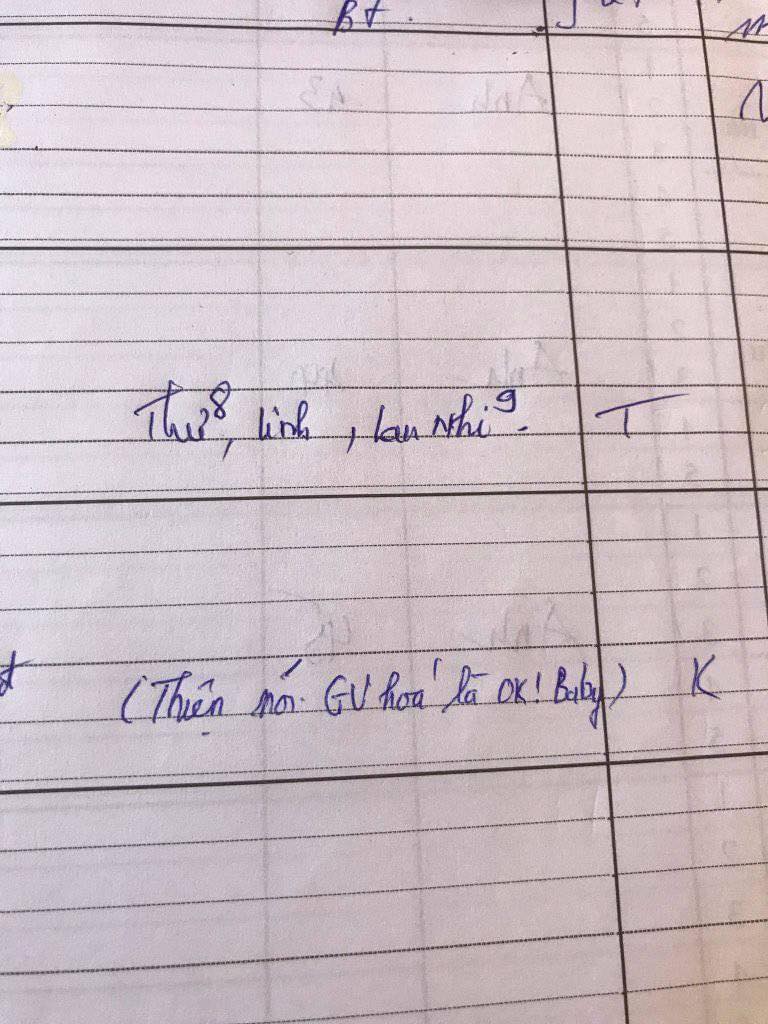 Bt.
Thư⁸, Linh, Lan Nhi⁹. T
(Thiện nói: GV hoá là OK! Baby) K